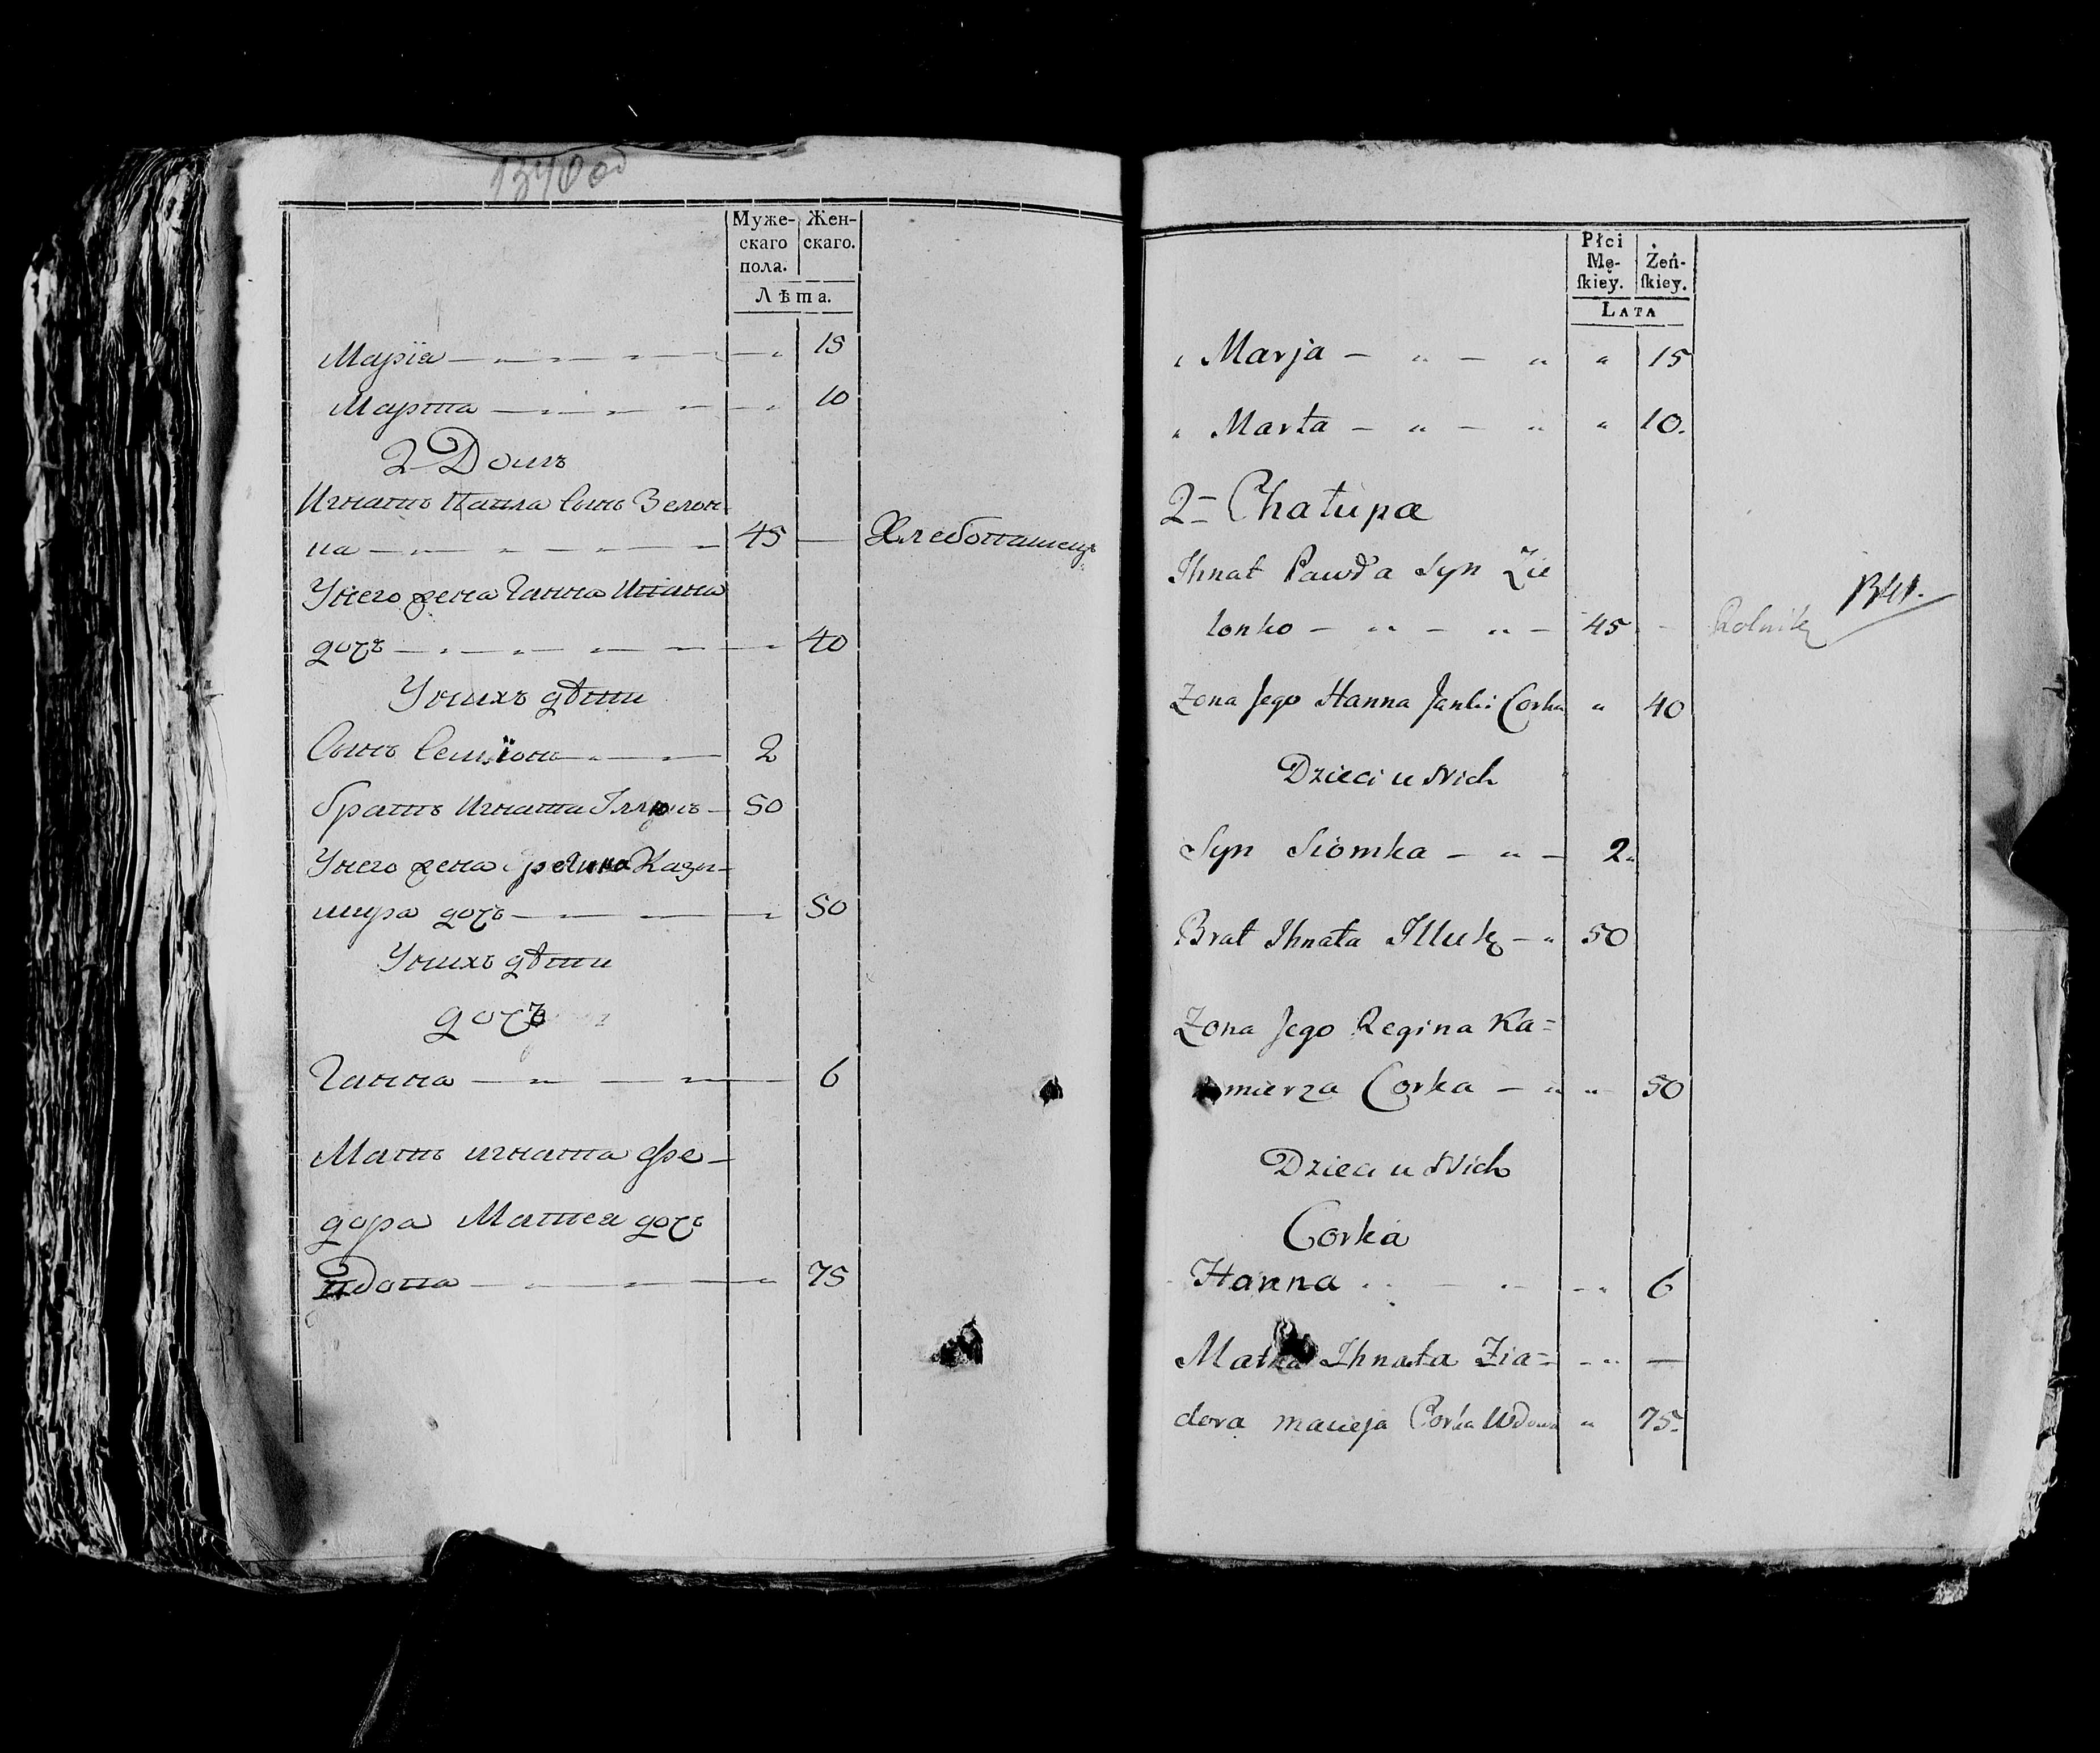 1340об
Муже-
скаго
пола.
Жен-
скаго.
Лѣта.
Марїа 15
Марта 10
2 Домъ
Игнатъ Павла Сынъ Зелон
ка 45 — Хлебопашецъ
Унего жена Ганна Ивана
дочъ 40
Унихъ дѣти
Сынъ Семїонъ 2
братъ Игната Іллюкъ 50
Унего жена Регина Кази-
мира дочъ 50
Унихъ дѣти
дочъ
Ганна 6
Мать игната фе-
дора Матеея дочъ
вдова 75
Płci
Mę-
ſkiey.
Żeń-
ſkiey.
LATA
„ Marja — „ — „ „ 15
„ Marta — „ — „ „ 10.
2= Chałupa
Ihnat Pawła Syn Zie
lonko — „ — „ — 45 — Rolnik
1341.
Zona Jego Hanna Janki Corka „ 40
Dzieci u Nich
Syn Siomka — „ — 2.
Brat Ihnata Illuk — „ 50
Zona Jego Regina Ka=
mierza Corka — „ „ 50
Dzieci u Nich
Corka
Hanna 6
Matka Ihnata Zia= - „ —
dora macieja Corka Wdowa „ 75.